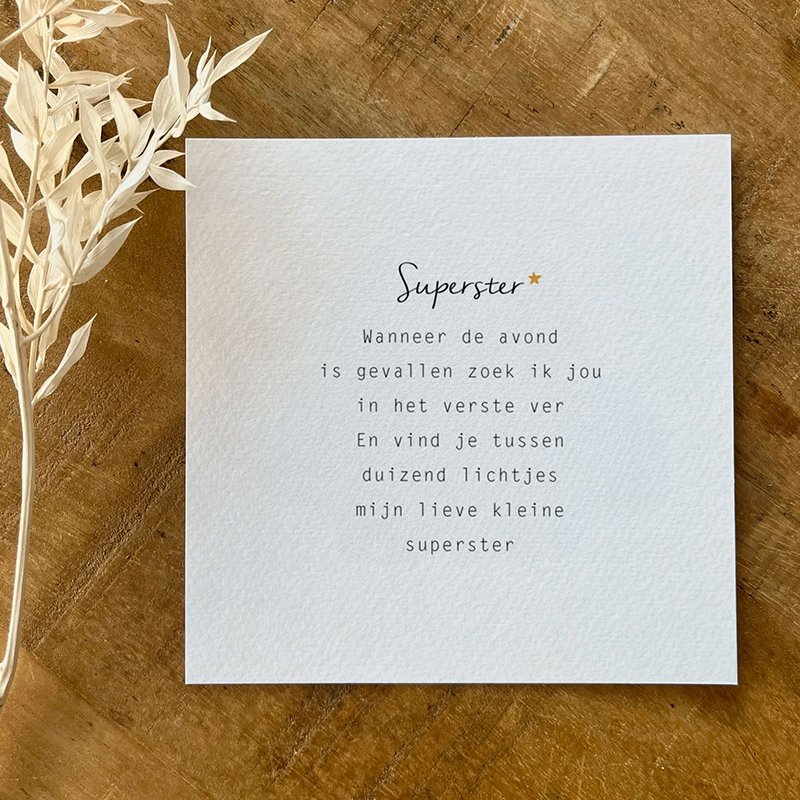 Superster
Wanneer de avond
is gevallen zoek ik jou
in het verste ver
En vind je tussen
duizend lichtjes
mijn lieve kleine
superster